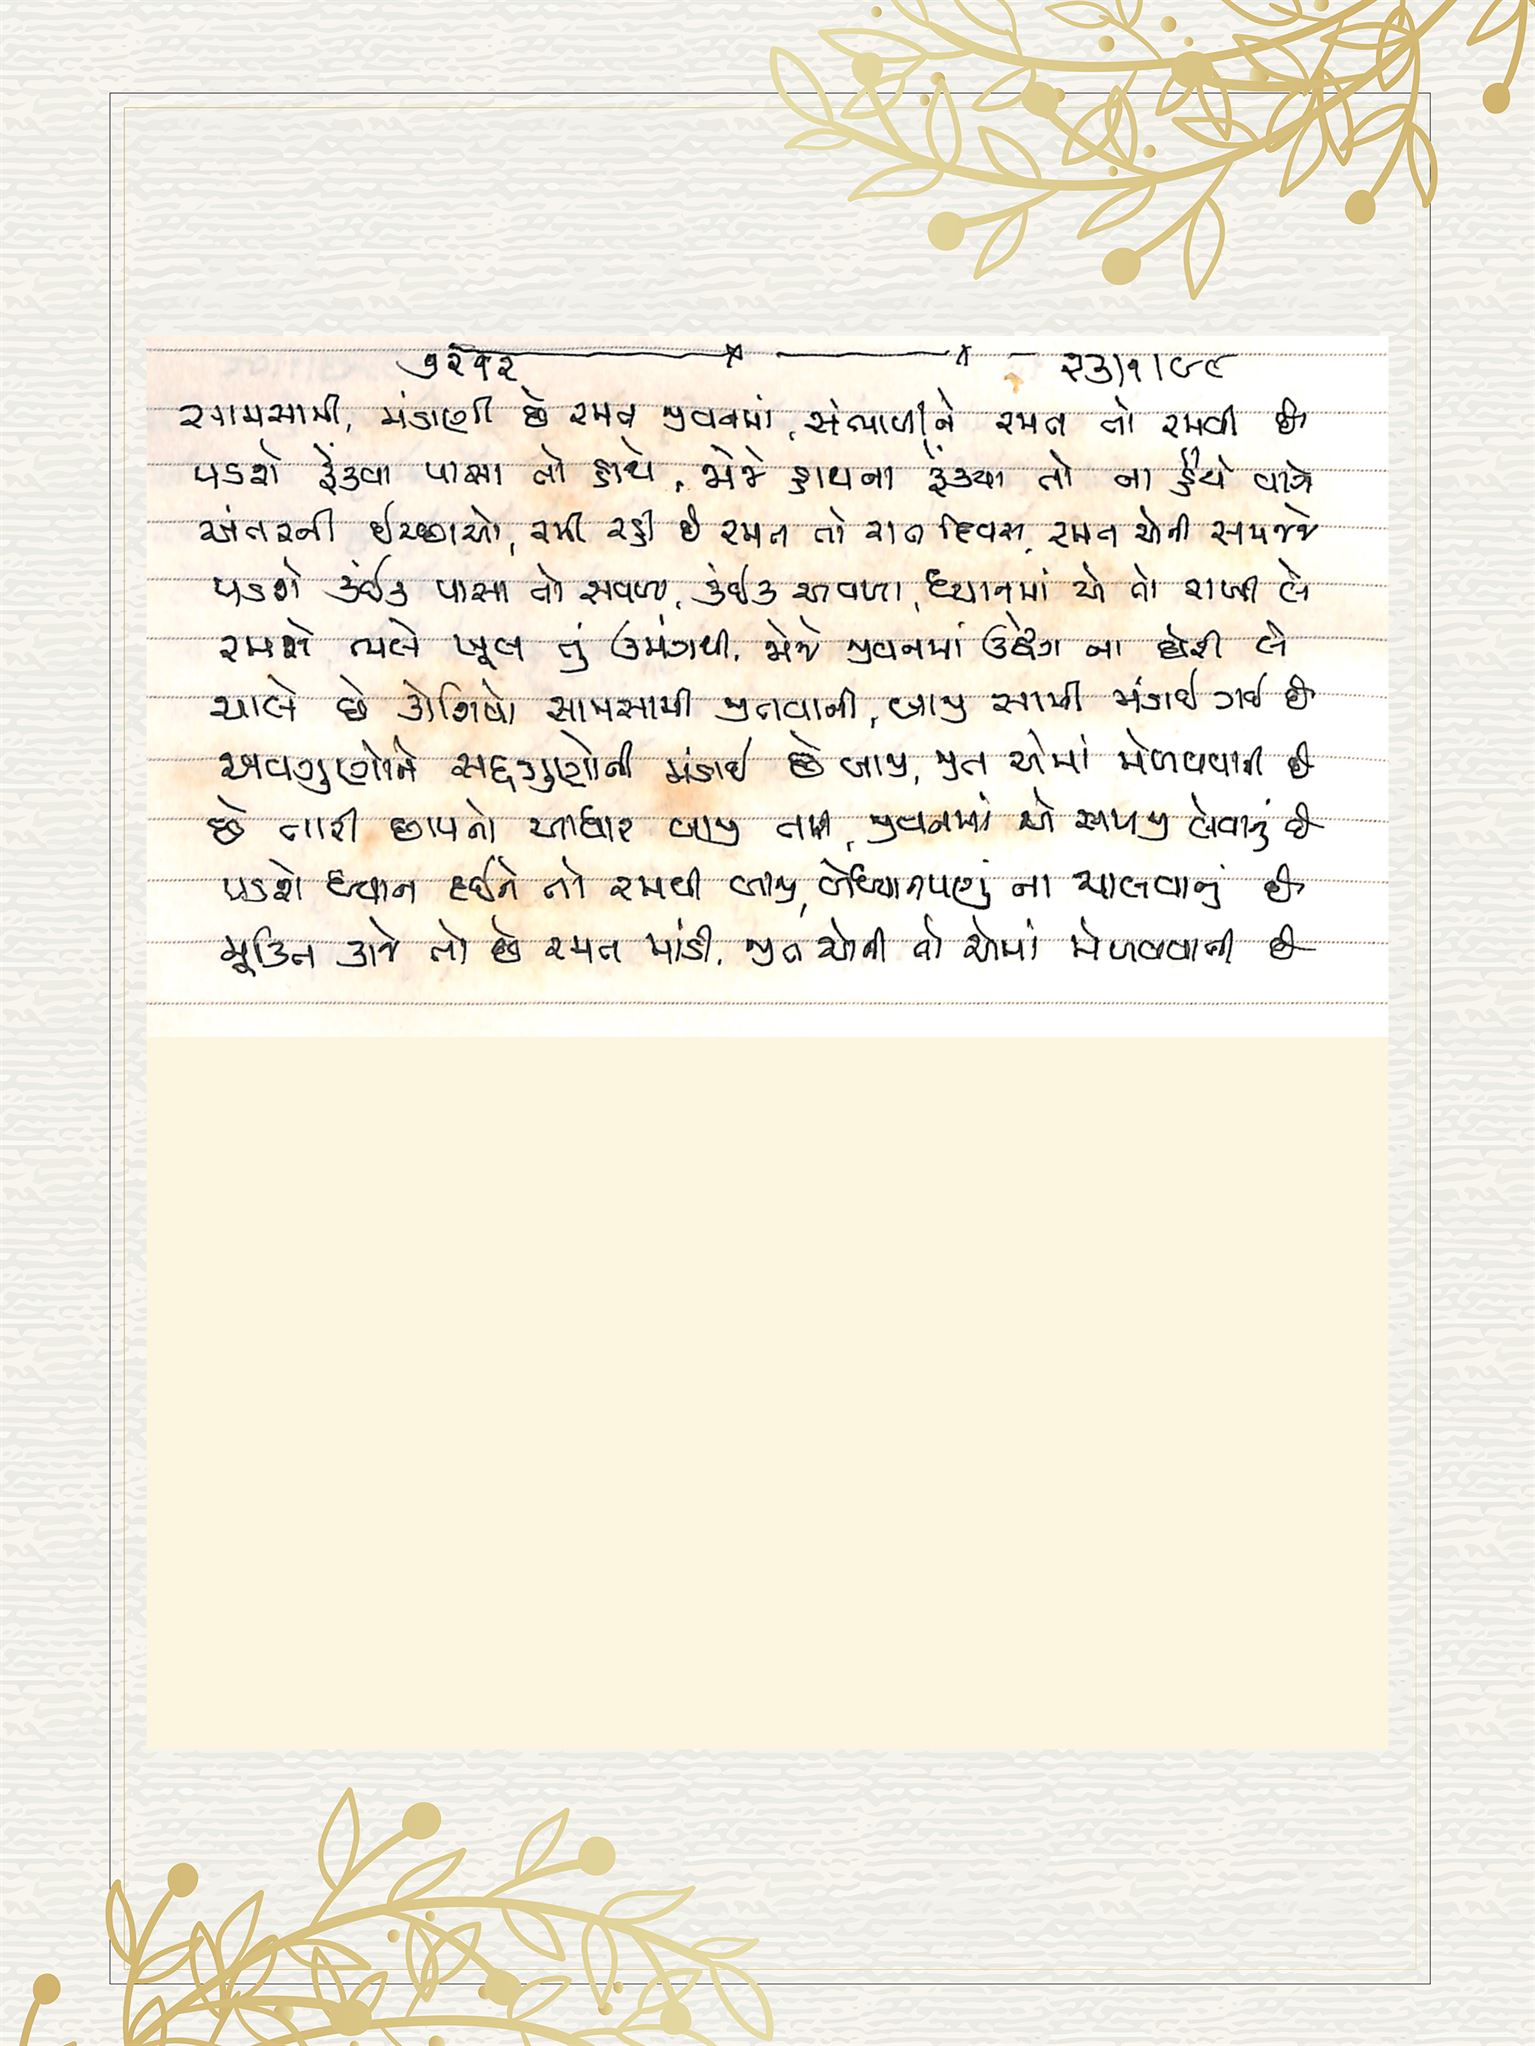 ૧૨૧૨ ૨૩/૧/૮૯
સામસામી, મંડાણી છે રમત જીવનમાં, સંભાળીને રમત તો રમવી છે
પડશે ફેંકવા પાસા તો હાથે, જોજે હાથના ફેંક્યા તો ના હૈયે વાગે
અંતરની ઇચ્છાઓ, રમી રહી છે રમત તો રાત દિવસ, રમત એની સમજજે
પડશે કંઈક પાસા તો સવળા, કંઈક અવળા, ધ્યાનમાં એ તો રાખી લે
રમશે ભલે ખૂલ તું ઉમંગથી, જોજે જીવનમાં ઉદ્વેગ ના હોરી લે
ચાલે છે કોશિષો સામસામી જીતવાની, બાજી સામી મંડાઈ ગઈ છે
અવગુણોને સદ્દગુણોની મંડાઈ છે બાજી, જીત એમાં મેળવવાની છે
છે તારી છાપનો આધાર બાજી તણો, જીવનમાં એ સમજી લેવાનું છે
પડશે ધ્યાન દઈને તો રમવી બાજી, બેધ્યાનપણું ના ચાલવાનું છે
મુક્તિ કાજે તો છે રમત માંડી, જીત એની તો એમાં મેળવવાની છે